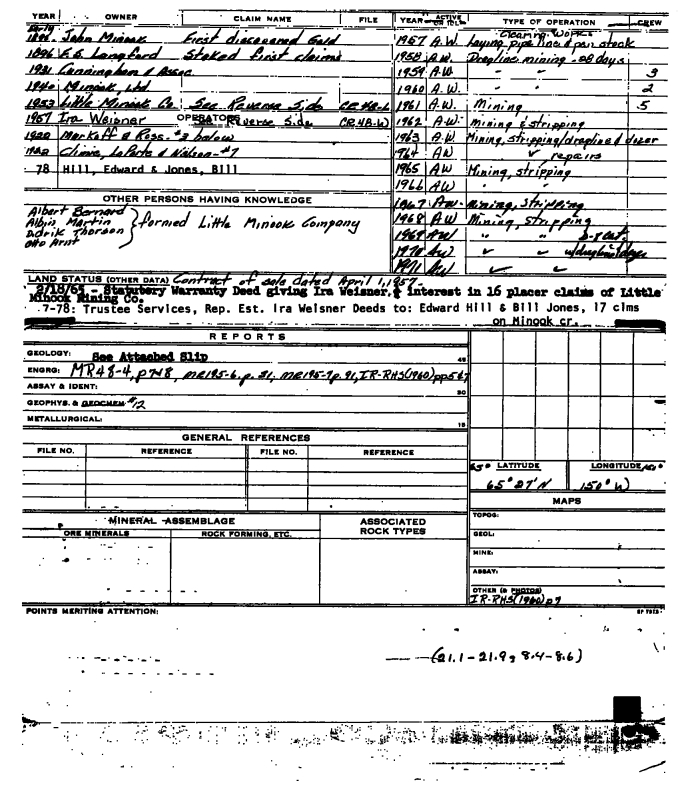 YEAR OWNER CLAIM NAME FILE
John Minook First discovered Gold
1896 F.G. Langford Staked first claims
1931 Cunningham & Assoc
1940 Minook, Ltd
1953 Little Minook Co. See Reverse Side CR48-L
OPERATORS
1957 Ira Weisner See Reverse Side CR48-W
Markoff & Ross - #3 below
LaPorte & Nelson - #7
78 Hill, Edward & Jones, Bill
OTHER PERSONS HAVING KNOWLEDGE
Albert Bernard
Albin Martin
Thorson
Otto Arnt
formed Little Minook Company
YEAR ACTIVE OR IDLE TYPE OF OPERATION CREW
Clearing Work
1957 A.W. Laying pipe line & pen stock
1958 A.W. Dragline mining - 28 days
1959 A.W. " " 3
1960 A.W. " " 2
1961 A.W. Mining 5
1962 A.W. Mining & stripping
1963 A.W. Mining, stripping/dragline & dozer
1964 AW " repairs
1965 AW Mining, stripping
1966 AW " "
1967 A.W. Mining, stripping
1968 A.W. Mining, stripping
1969 AW " " D-8 cat
1970 AW " " w/dragline/dozer
1971 AW " "
LAND STATUS (OTHER DATA) Contract of sale dated April 1, 1957.
2/18/65 - Statutory Warranty Deed giving Ira Weisner, interest in 16 placer claims of Little
Minook Mining Co.
7-78: Trustee Services, Rep. Est. Ira Weisner Deeds to: Edward Hill & Bill Jones, 17 clms
on Minook cr.
REPORTS
GEOLOGY: See Attached Slip 45
ENGRG: MR48-4, p7&8, MR195-6, p. 31, MR195-7 p. 91, IR-RHS(1960) pp5&7
30
ASSAY & IDENT:
GEOPHYS. & GEOCHEM #12
METALLURGICAL: 15
GENERAL REFERENCES
FILE NO. REFERENCE FILE NO. REFERENCE
65° LATITUDE LONGITUDE 151°
65° 27' N 150° W
MAPS
TOPOG:
GEOL:
MINE:
ASSAY:
OTHER (& PHOTOS)
IR-RHS(1960) p7
MINERAL ASSEMBLAGE ASSOCIATED ROCK TYPES
ORE MINERALS ROCK FORMING, ETC.
POINTS MERITING ATTENTION:
(21.1-21.9, 8.4-8.6)